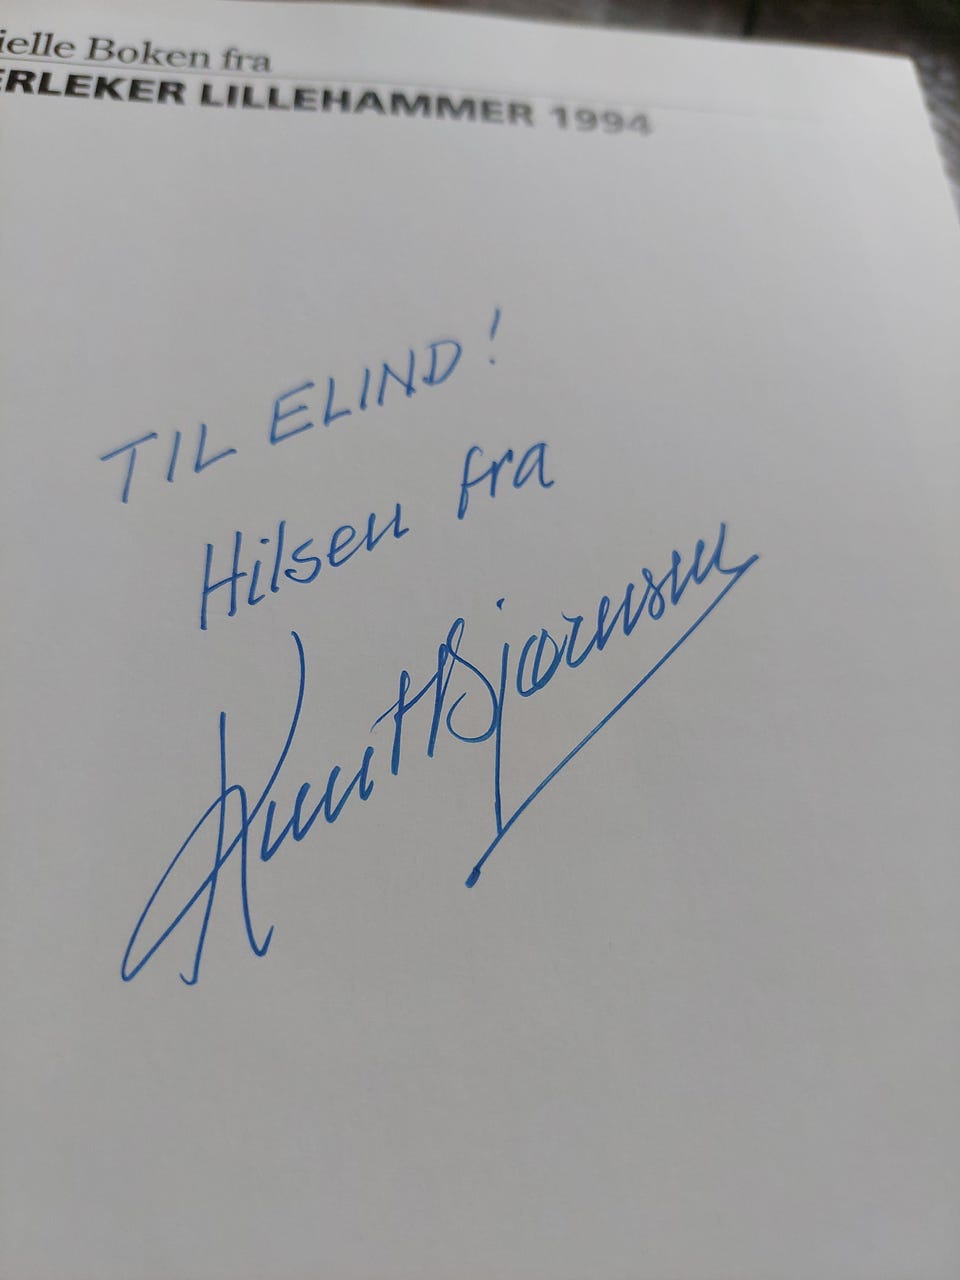 ielle Boken fra
ERLEKER LILLEHAMMER 1994
TIL ELIND!
Hilsen fra
Knut Bjørnsen